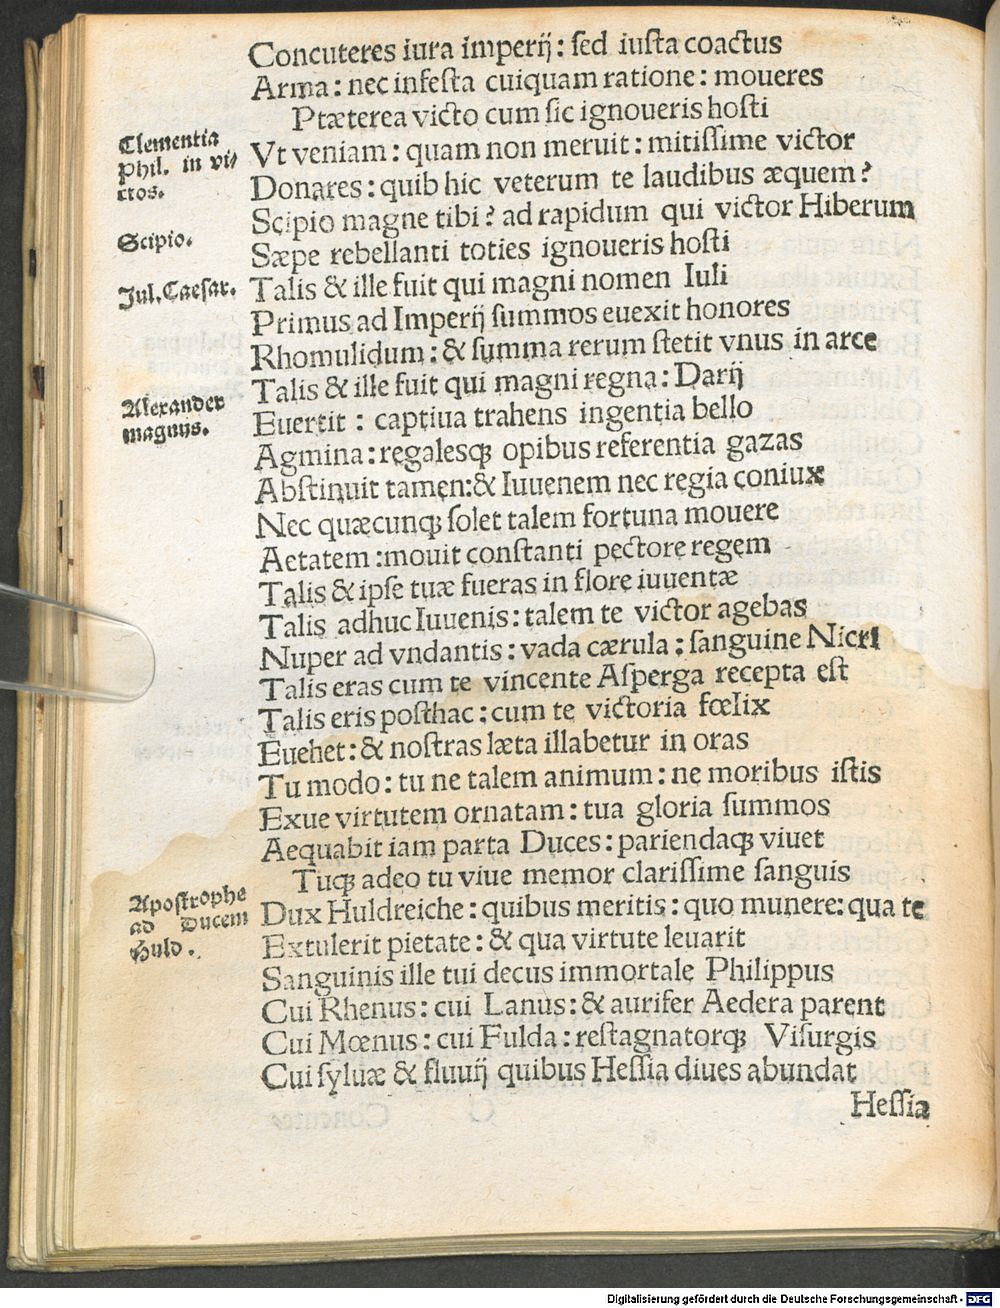 Concuteres iura imperij: sed iusta coactus
Arma: nec infesta cuiquam ratione: moueres
Ptæterea victo cum sic ignoueris hosti
Clementia
Phil. in vi⸗
ctos.
Vt veniam: quam non meruit: mitissime victor
Donares: quib hic veterum te laudibus æquem?
Scipio magne tibi? ad rapidum qui victor Hiberum
Scipio.
Sæpe rebellanti toties ignoueris hosti
Jul. Caesar.
Talis & ille fuit qui magni nomen Iuli
Primus ad Imperij summos euexit honores
Rhomulidum: & summa rerum stetit vnus in arce
Talis & ille fuit qui magni regna: Darij
Alexander
magnus.
Euertit: captiua trahens ingentia bello
Agmina: regalesq; opibus referentia gazas
Abstinuit tamen: & Iuuenem nec regia coniux
Nec quæcunq; solet talem fortuna mouere
Aetatem: mouit constanti pectore regem
Talis & ipse tuæ fueras in flore iuuentæ
Talis adhuc Iuuenis: talem te victor agebas
Nuper ad vndantis: vada cærula: sanguine Nicri
Talis eras cum te vincente Asperga recepta est
Talis eris posthac: cum te victoria fœlix
Euehet: & nostras læta illabetur in oras
Tu modo: tu ne talem animum: ne moribus istis
Exue virtutem ornatam: tua gloria summos
Aequabit iam parta Duces: pariendaq; viuet
Tuq; adeo tu viue memor clarissime sanguis
Apostrophe
ad Ducem
Huld.
Dux Huldreiche: quibus meritis: quo munere: qua te
Extulerit pietate: & qua virtute leuarit
Sanguinis ille tui decus immortale Philippus
Cui Rhenus: cui Lanus: & aurifer Aedera parent
Cui Mœnus: cui Fulda: restagnatorq; Visurgis
Cui syluæ & fluuij quibus Hessia diues abundat
Hessia
Digitalisierung gefördert durch die Deutsche Forschungsgemeinschaft - DFG